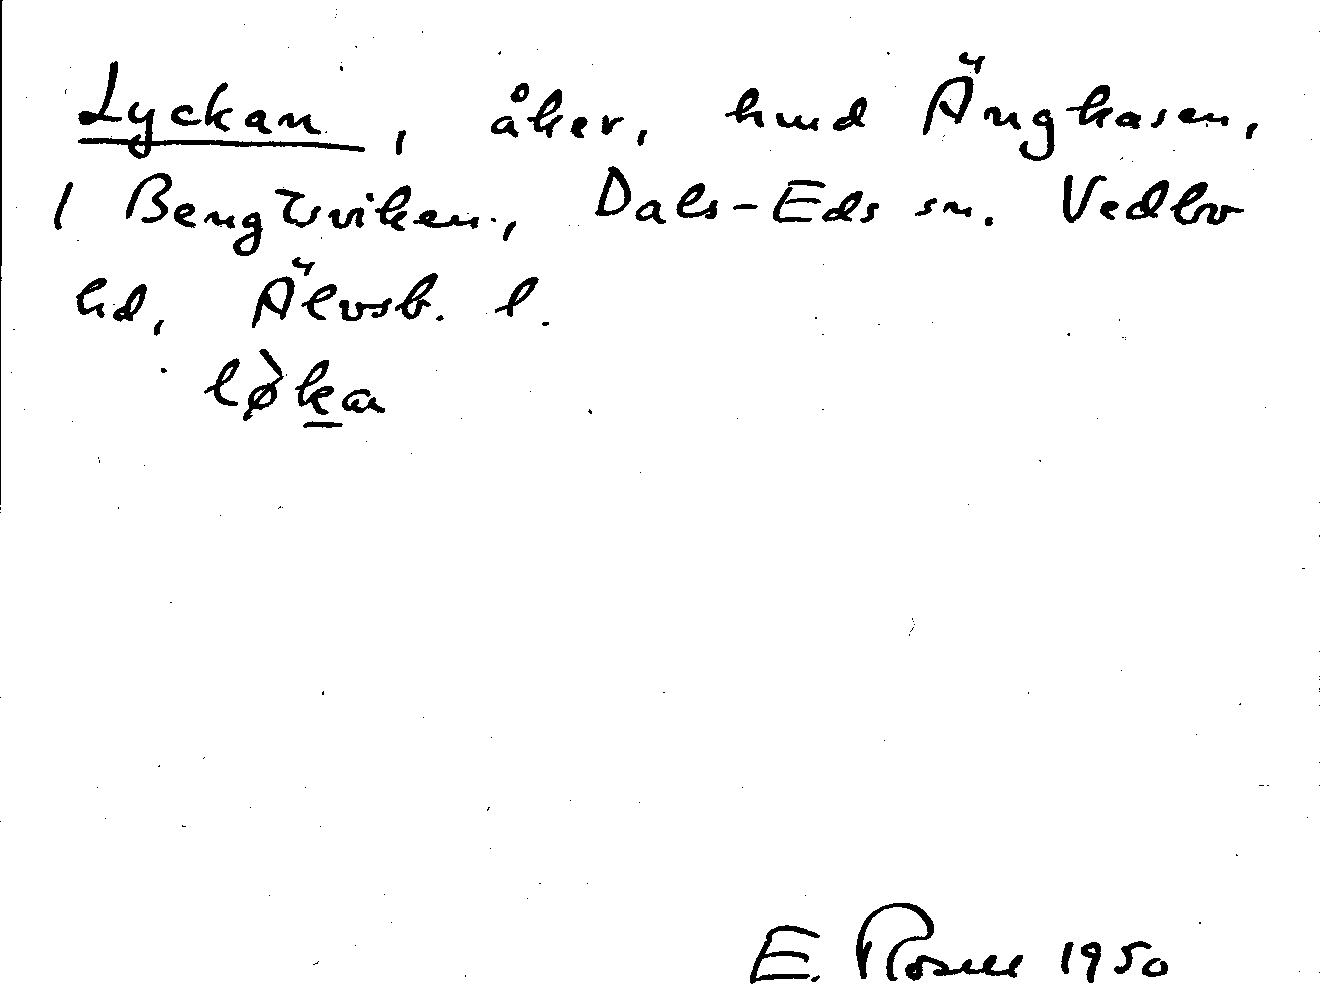 Lyckan, åker, hmd Ängkasen,
1 Bengtsviken, Dals-Eds sn. Vedbo
hd, Älvsb. l.
lø̀kan
E. Rosell 1950